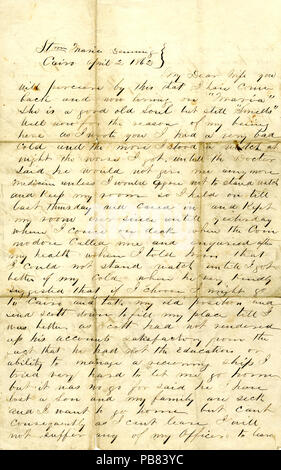 Stmr Maria Denning
Cairo April 2 1862
My Dear Wife you
will percieve by this that I have come
back and now living on "Maria"
She is a good old soul but still "smells"
Well now for the reason of my being
here as I wrote you I had a very bad
cold and the more I stood a watch at
night the worse I got, untill the Doctor
said he would not give me any more
medicin unless I would agree not to stand watch
and keep my room so I held on till
last thursday and caved in and kept
my room ever since untill yesterday
when I came on deck when the Com
modore called me and enquired after
my health when I told him that
I could not stand watch untill I got
better of my cold when he very kindly
suggested that if I choose I might go
to Cairo and take my old position and
send Scott down to fill my place till I
was better as Scott had not rendered
up his accounts satisfactory from the
fact that he had not the education or
ability to manage a receiving ship I
tried very hard to let me go home
but it was no go for said he I have
lost a son and my family are sick
and I want to go home but cant
consequently as I cant leave I will
not suffer any of my Officers to leave
alamy
PB83YC